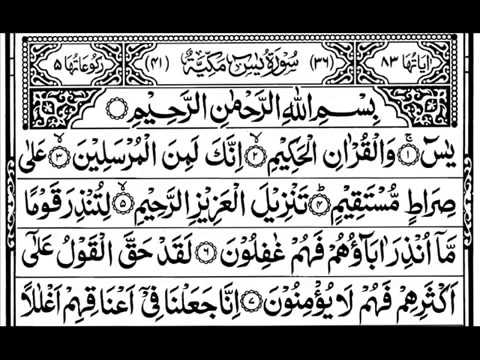 اٰیَاتُهَا ۸۳ (۳۶) سُوْرَةُ یٰسٓ مَكِّیَّةٌ (۴۱) رُكُوْعَاتُهَا ۵
بِسْمِ اللّٰهِ الرَّحْمٰنِ الرَّحِیْمِ
یٰسٓ ۱ وَالْقُرْاٰنِ الْحَكِیْمِ ۲ اِنَّكَ لَمِنَ الْمُرْسَلِیْنَ ۳ عَلٰی
صِرَاطٍ مُّسْتَقِیْمٍ ۴ تَنْزِیْلَ الْعَزِیْزِ الرَّحِیْمِ ۵ لِتُنْذِرَ قَوْمًا
مَّاۤ اُنْذِرَ اٰبَآؤُهُمْ فَهُمْ غٰفِلُوْنَ ۶ لَقَدْ حَقَّ الْقَوْلُ عَلٰۤی
اَكْثَرِهِمْ فَهُمْ لَا یُؤْمِنُوْنَ ۷ اِنَّا جَعَلْنَا فِیْۤ اَعْنَاقِهِمْ اَغْلٰلًا